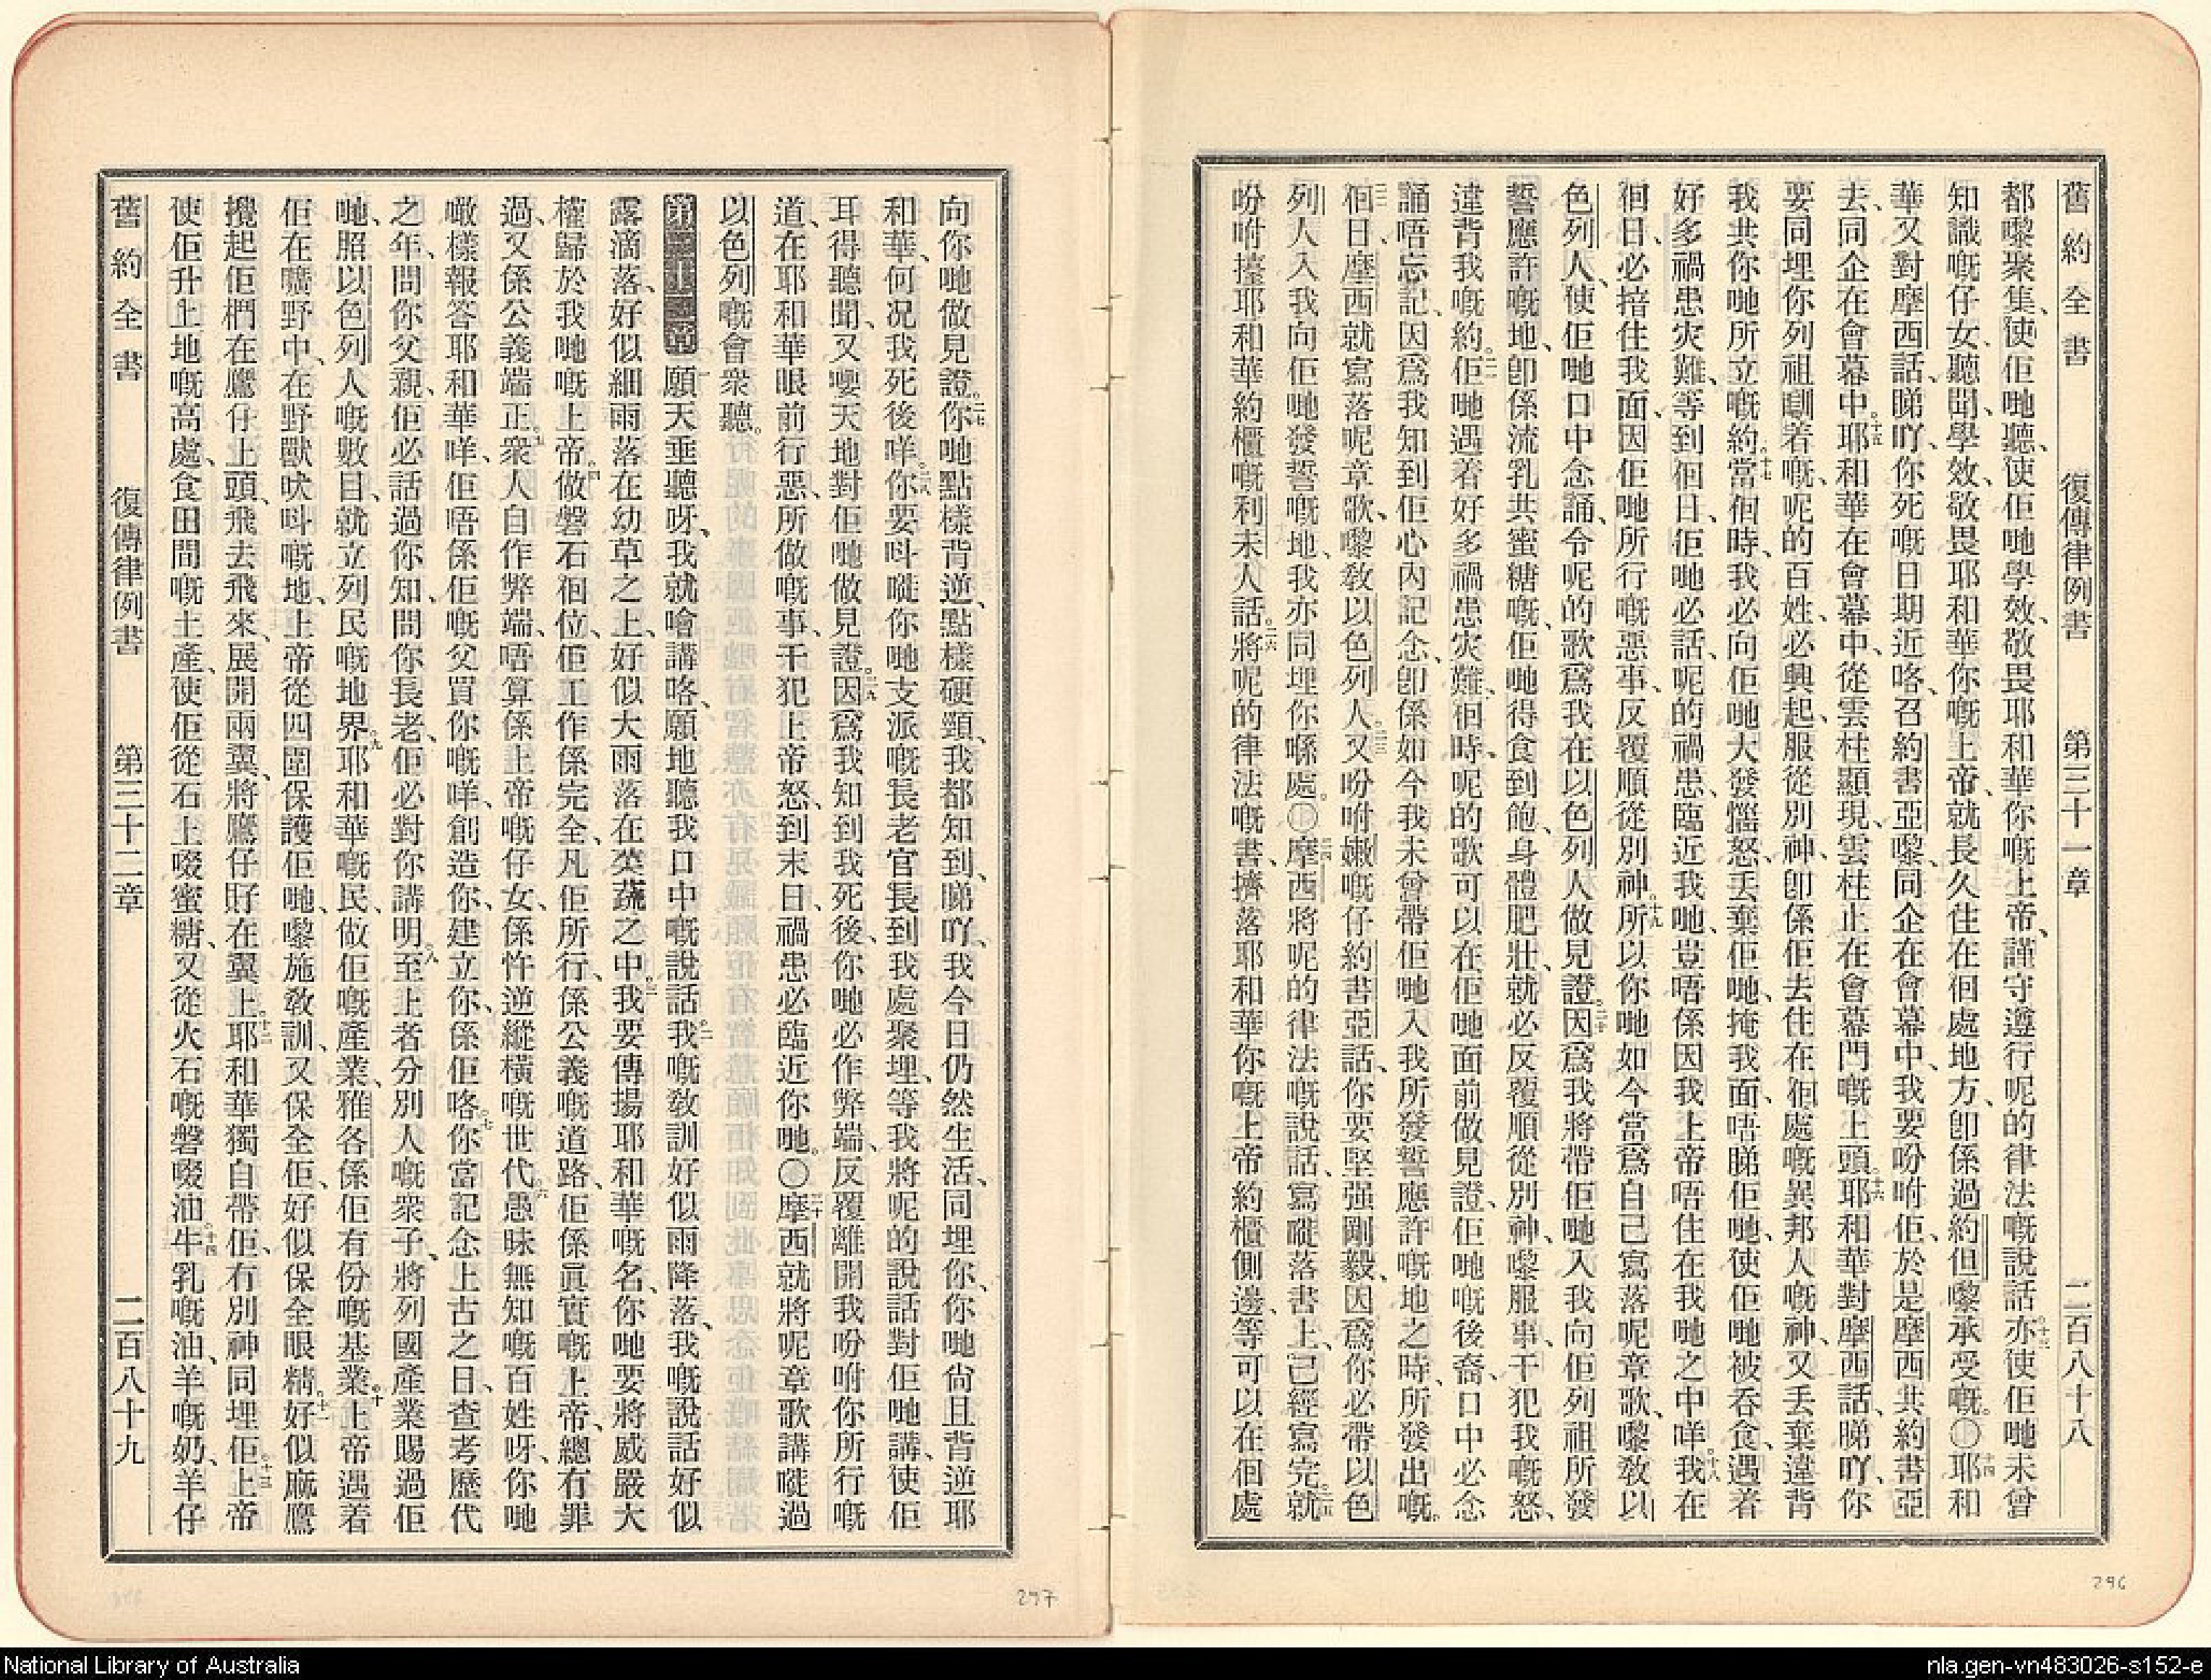 舊約全書　復傳律例書　第三十一章　二百八十八
都嚟聚集、使佢哋聽、使佢哋學效、敬畏耶和華你嘅上帝、謹守遵行呢的律法嘅說話。十三亦使佢哋未曾
知識嘅仔女、聽聞、學效、敬畏耶和華你嘅上帝、就長久住在佪處地方、卽係過約但嚟承受嘅。〇十四耶和
華又對摩西話、睇吖、你死嘅日期近咯、召約書亞嚟、同企在會幕中、我要吩咐佢、於是摩西共約書亞
去、同企在會幕中。十五耶和華在會幕中、從雲柱顯現、雲柱正在會幕門嘅上頭。十六耶和華對摩西話、睇吖、你
要同埋你列祖瞓着嘅、呢的百姓、必興起、服從別神、卽係佢去住在佪處嘅異邦人嘅神、又丢棄違背
我共你哋所立嘅約。十七當佪時、我必向佢哋大發惱怒、丢棄佢哋、掩我面、唔睇佢哋、使佢哋被吞食、遇着
好多禍患灾難、等到佪日、佢哋必話、呢的禍患、臨近我哋、豈唔係因我上帝唔住在我哋之中咩。十八我在
佪日、必揞住我面、因佢哋所行嘅惡事、反覆順從別神。十九所以你哋如今當爲自己寫落呢章歌、嚟教以
色列人、使佢哋口中念誦、令呢的歌爲我在以色列人做見證。二十因爲我將帶佢哋入我向佢列祖所發
誓應許嘅地、卽係流乳共蜜糖嘅、佢哋得食到飽、身體肥壯、就必反覆順從別神、嚟服事、干犯我嘅怒、
違背我嘅約。二一佢哋遇着好多禍患灾難、佪時、呢的歌可以在佢哋面前做見證、佢哋嘅後裔、口中必念
誦唔忘記、因爲我知到佢心內記念、卽係如今我未曾帶佢哋入我所發誓應許嘅地之時、所發出嘅。
二二佪日、摩西就寫落呢章歌、嚟教以色列人。二三又吩咐嫩嘅仔約書亞話、你要堅强剛毅、因爲你必帶以色
列人入我向佢哋發誓嘅地、我亦同埋你喺處。〇二四摩西將呢的律法嘅說話、寫嘥落書上、已經寫完。二五就
吩咐擡耶和華約櫃嘅利未人話。二六將呢的律法嘅書、擠落耶和華你嘅上帝約櫃側邊、等可以在佪處
296
向你哋做見證。二七你哋點樣背逆、點樣硬頸、我都知到、睇吖、我今日仍然生活、同埋你、你哋尙且背逆耶
和華、何况我死後咩。二八你要呌嘥你哋支派嘅長老官長到我處聚埋、等我將呢的說話對佢哋講、使佢
耳得聽聞、又嘤天地對佢哋做見證。二九因爲我知到我死後、你哋必作弊端、反覆離開我吩咐你所行嘅
道、在耶和華眼前行惡、所做嘅事、干犯上帝怒、到末日、禍患必臨近你哋。〇三十摩西就將呢章歌講嘥過
以色列嘅會衆聽。
第三十二章　一願天垂聽呀、我就噲講咯、願地聽我口中嘅說話。二我嘅教訓好似雨降落、我嘅說話好似
露滴落、好似細雨落在幼草之上、好似大雨落在菜蔬之中。三我要傳揚耶和華嘅名、你哋要將威嚴大
權歸於我哋嘅上帝。四做磐石佪位、佢工作係完全、凡佢所行、係公義嘅道路、佢係眞實嘅上帝、總有罪
過、又係公義端正。五衆人自作弊端、唔算係上帝嘅仔女、係忤逆縱橫嘅世代。六愚昧無知嘅百姓呀、你哋
噉樣報答耶和華咩、佢唔係佢嘅父買你嘅咩、創造你、建立你、係佢咯。七你當記念上古之日、查考歷代
之年、問你父親、佢必話過你知、問你長老、佢必對你講明。八至上者分別人嘅衆子、將列國產業賜過佢
哋、照以色列人嘅數目、就立列民嘅地界。九耶和華嘅民、做佢嘅產業、雅各係佢有份嘅基業。十上帝遇着
佢在曠野中、在野獸吠呌嘅地、上帝從四圍保護佢哋、嚟施教訓、又保全佢、好似保全眼精。十一好似鷹
攪起佢㯗在鷹仔上頭、飛去飛來、展開兩翼、將鷹仔孖在翼上。十二耶和華獨自帶佢、冇別神同埋佢。十三上帝
使佢升上地嘅高處、食田間嘅土產、使佢從石上啜蜜糖、又從火石嘅磐啜油。十四牛乳嘅油、羊嘅奶、羊仔
舊約全書　復傳律例書　第三十二章　二百八十九
297
National Library of Australia
nla.gen-vn483026-s152-e